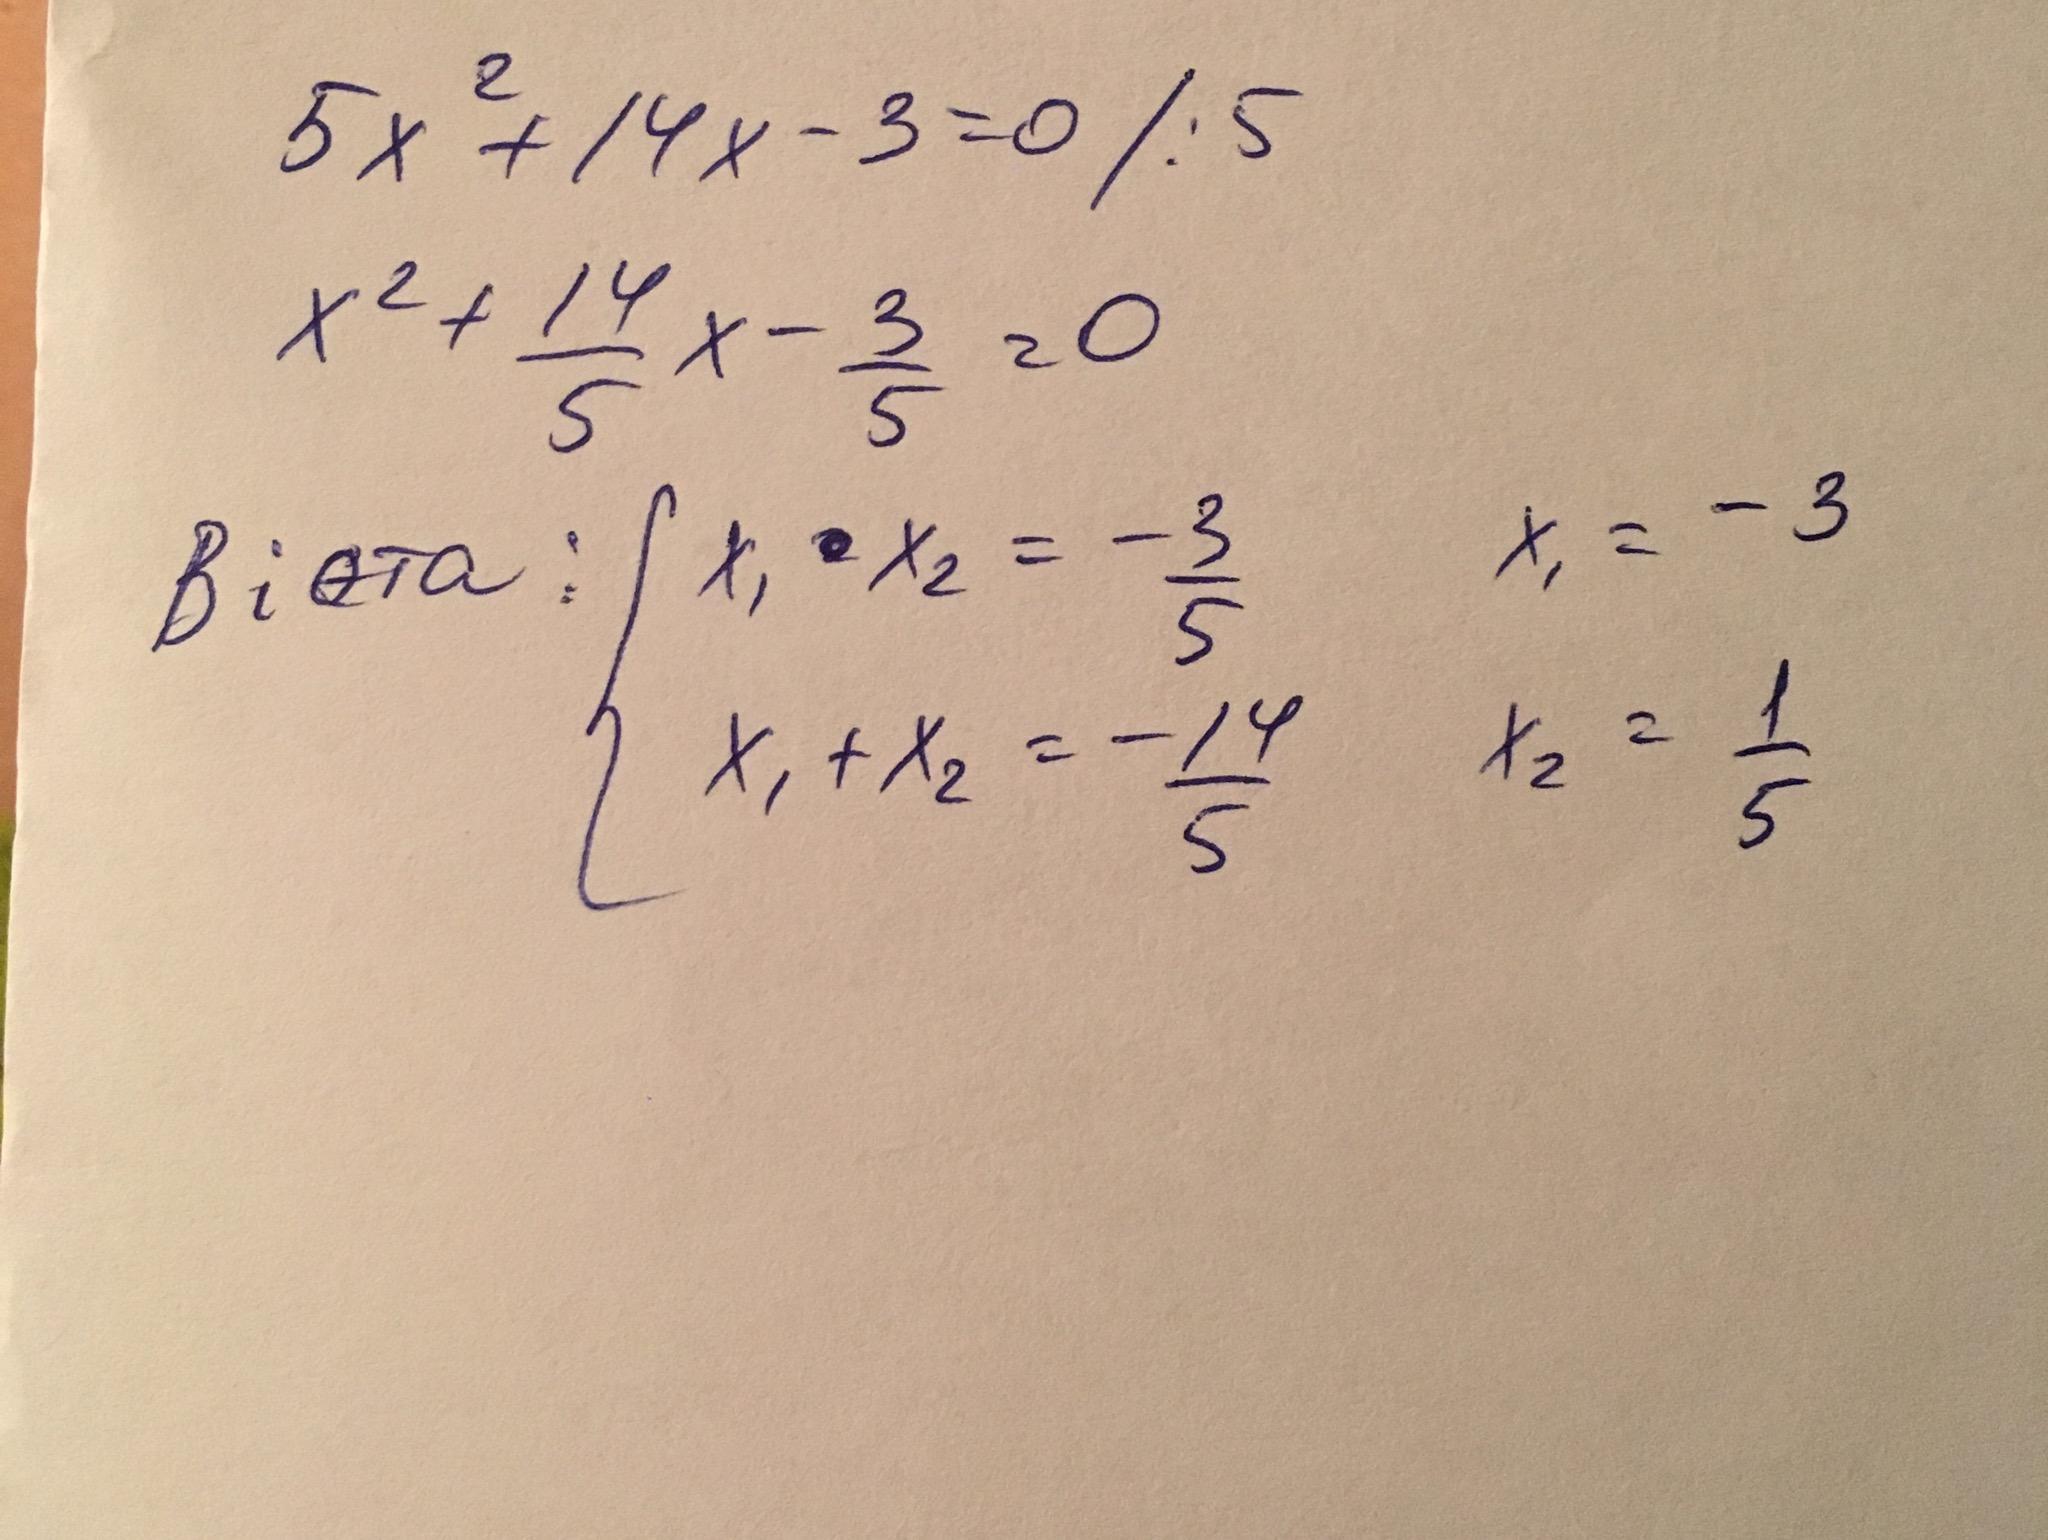 5x² + 14x - 3 = 0 / : 5
x² + 14/5 x - 3/5 = 0
Вієта: { x₁ • x₂ = -3/5 x₁ = -3
x₁ + x₂ = -14/5 x₂ = 1/5